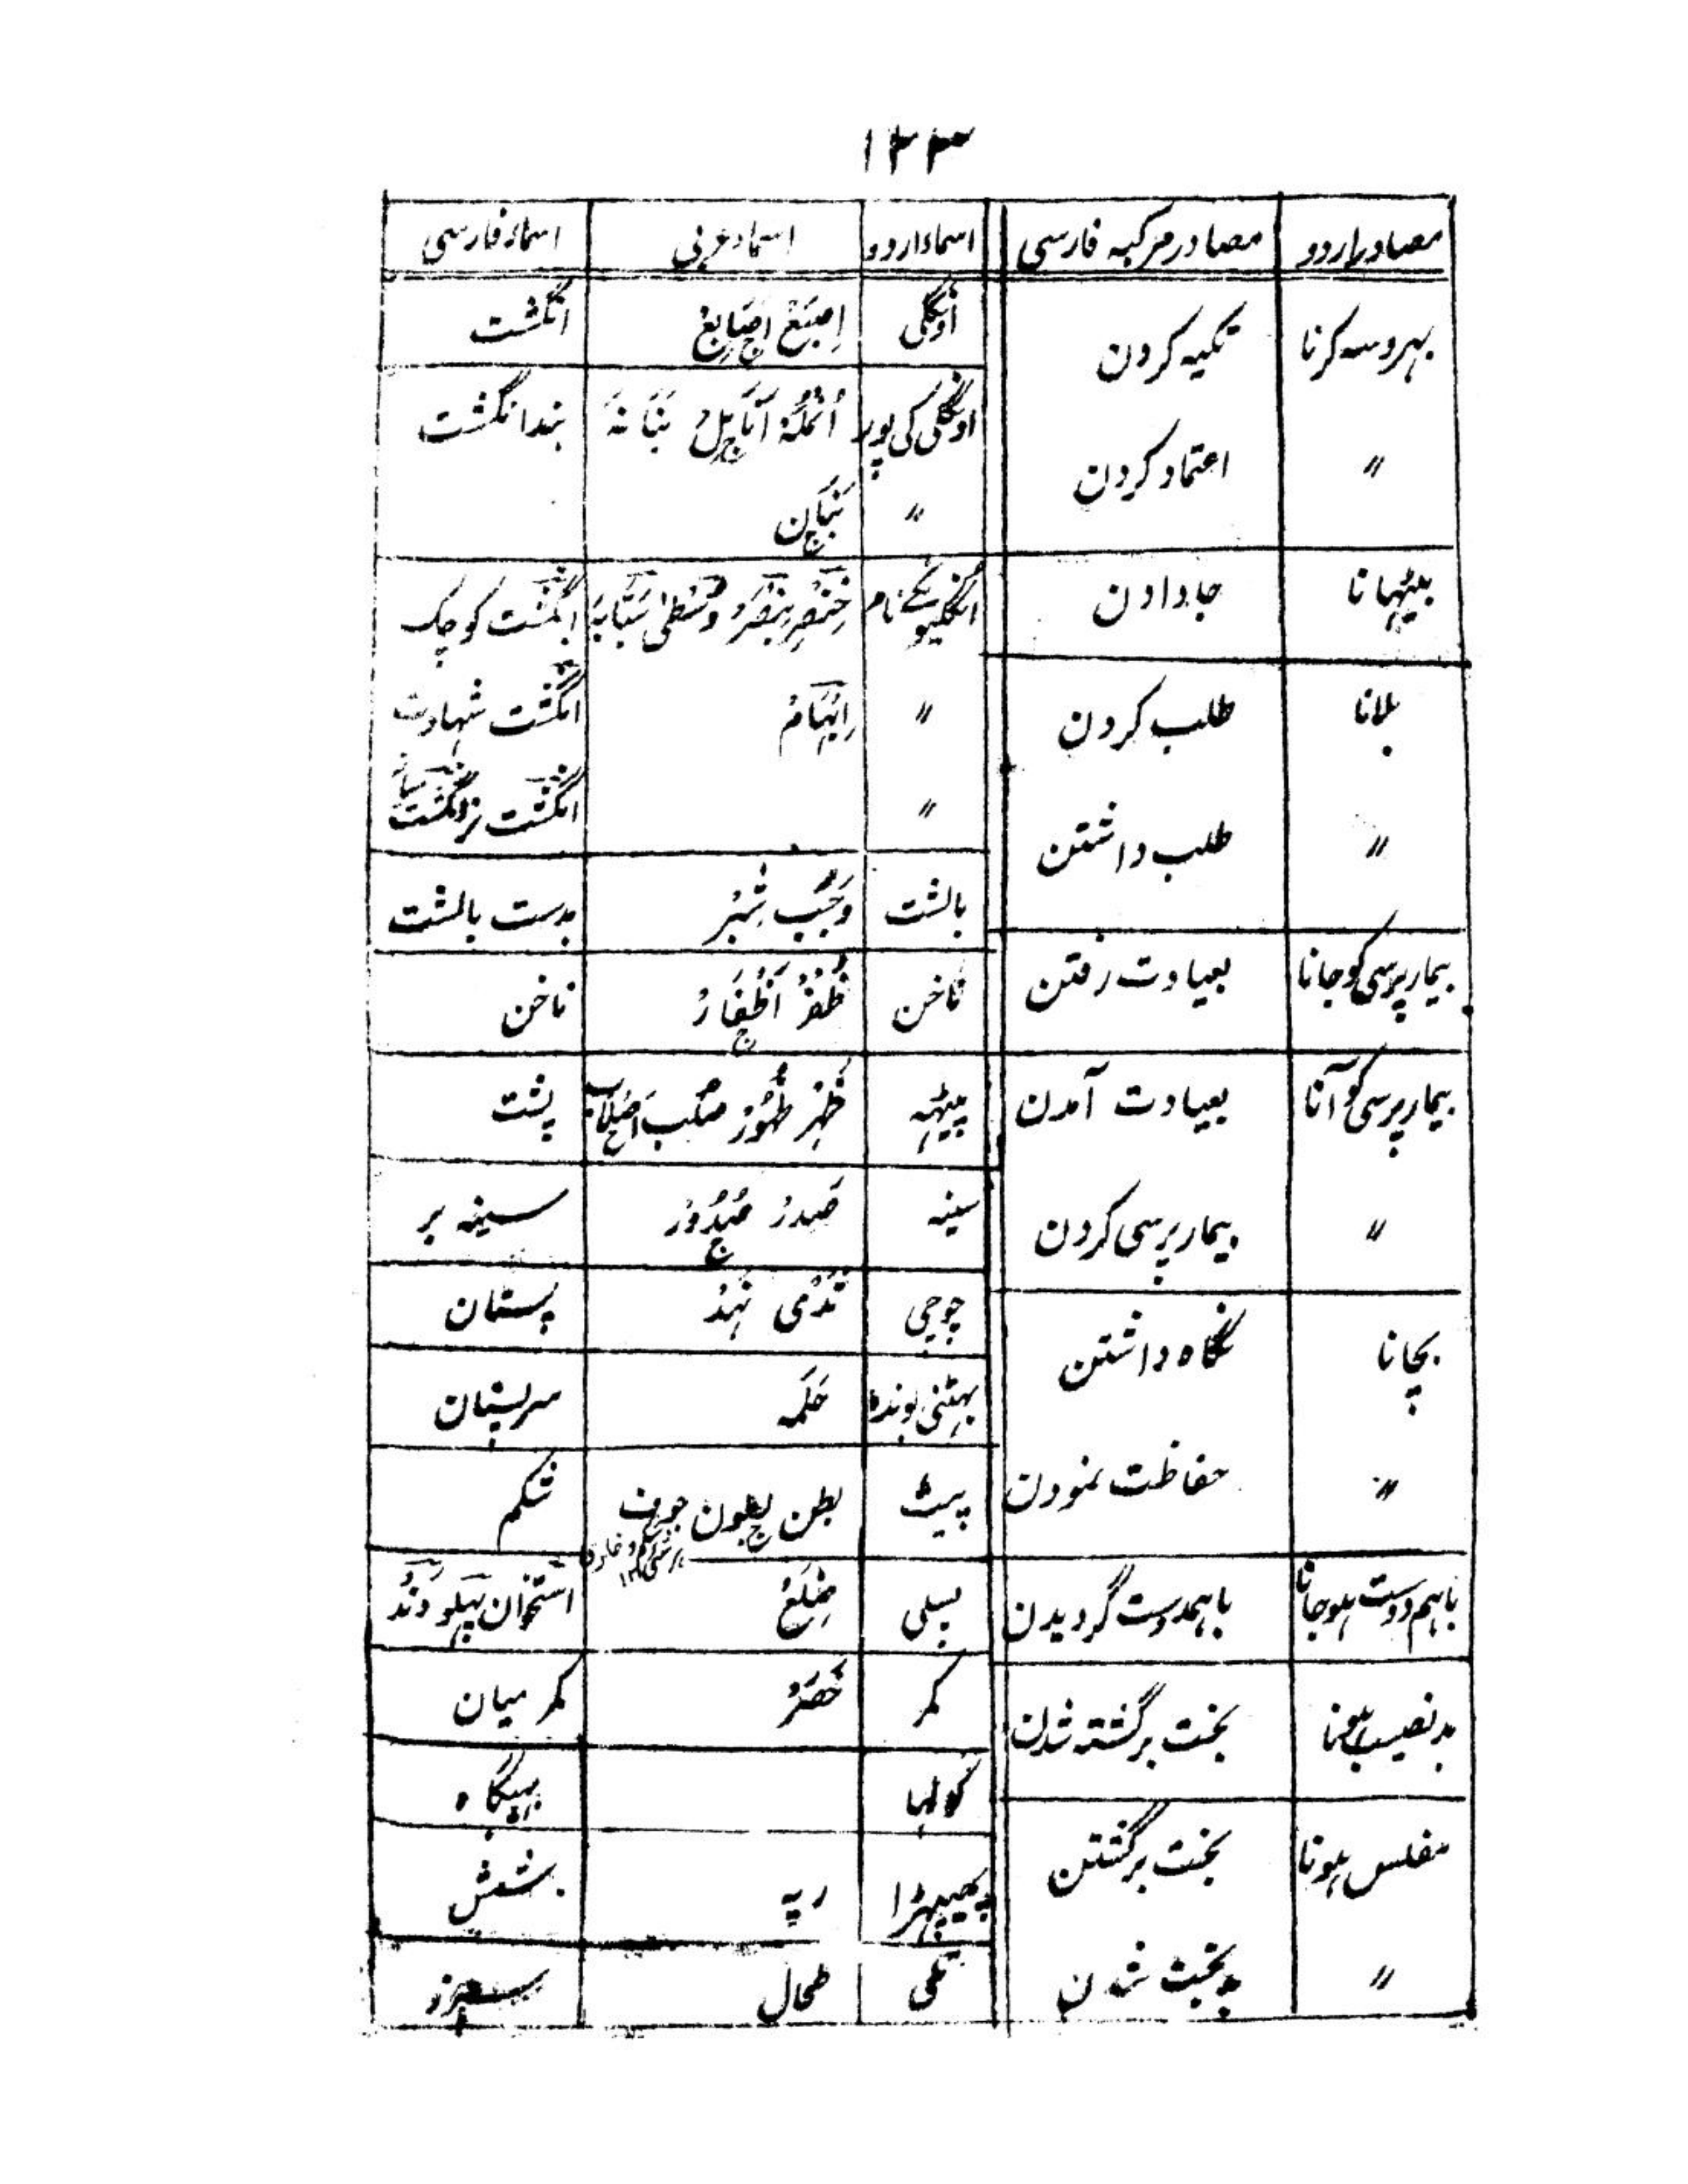 ۱۲۳
مصادر اردو | مصادر مرکبہ فارسی | اسماء اردو | اسماء عربی | اسماء فارسی
بہروسہ کرنا | تکیہ کردن
〃 | اعتماد کردن
بیٹہانا | جا دادن
بلانا | طلب کردن
〃 | طلب داشتن
بیمار پرسی کو جانا | بعیادت رفتن
بیمار پرسی کو آنا | بعیادت آمدن
〃 | بیمار پرسی کردن
بچانا | نگاہ داشتن
〃 | حفاظت نمودن
باہم دوست ہوجانا | باہمدوست گردیدن
بد نصیب ہونا | بخت برگشتہ شدن
مفلس ہونا | بخت برگشتن
〃 | بدبخت شدن
اونگلی | اِصْبَعْ اَصَابِعُ ج | انگشت
اونگلی کی پور | اُنْمُلَۃُ اَنَامِلُ ج بَنَانَہ | بند انگشت
〃 | بَنَان ج
انگلیونکے نام | خِنْصَر بِنْصَرُ وُسْطیٰ سَبَّابَہ | انگشت کوچک
〃 | اِبْہَامُ | انگشت شہادت
〃 | انگشت نرانگشت
بالشت | وَجَبُ شِبْرُ | بدست بالشت
ناخن | ظُفُرُ اَظْفَارُ ج | ناخن
پیٹہہ | ظَہْرُ ظُہُوْرُ صُلب اَصْلَاب ج | پشت
سینہ | صَدرُ صُدُوْرُ ج | سینہ بر
چوچی | ثَدْی نَہْدُ | پستان
بہٹنی بونڈہ | حَلَمہ | سرپستان
پیٹ | بطن بطون ج جوف | شکم
پسلی | ضِلَعُ | استخوان پہلو دَندُ
کمر | خَصْرُ | کمر میان
کولہا | تہیگاہ
پھیپھڑا | ریہ | شش
تلی | طحال | سپرز